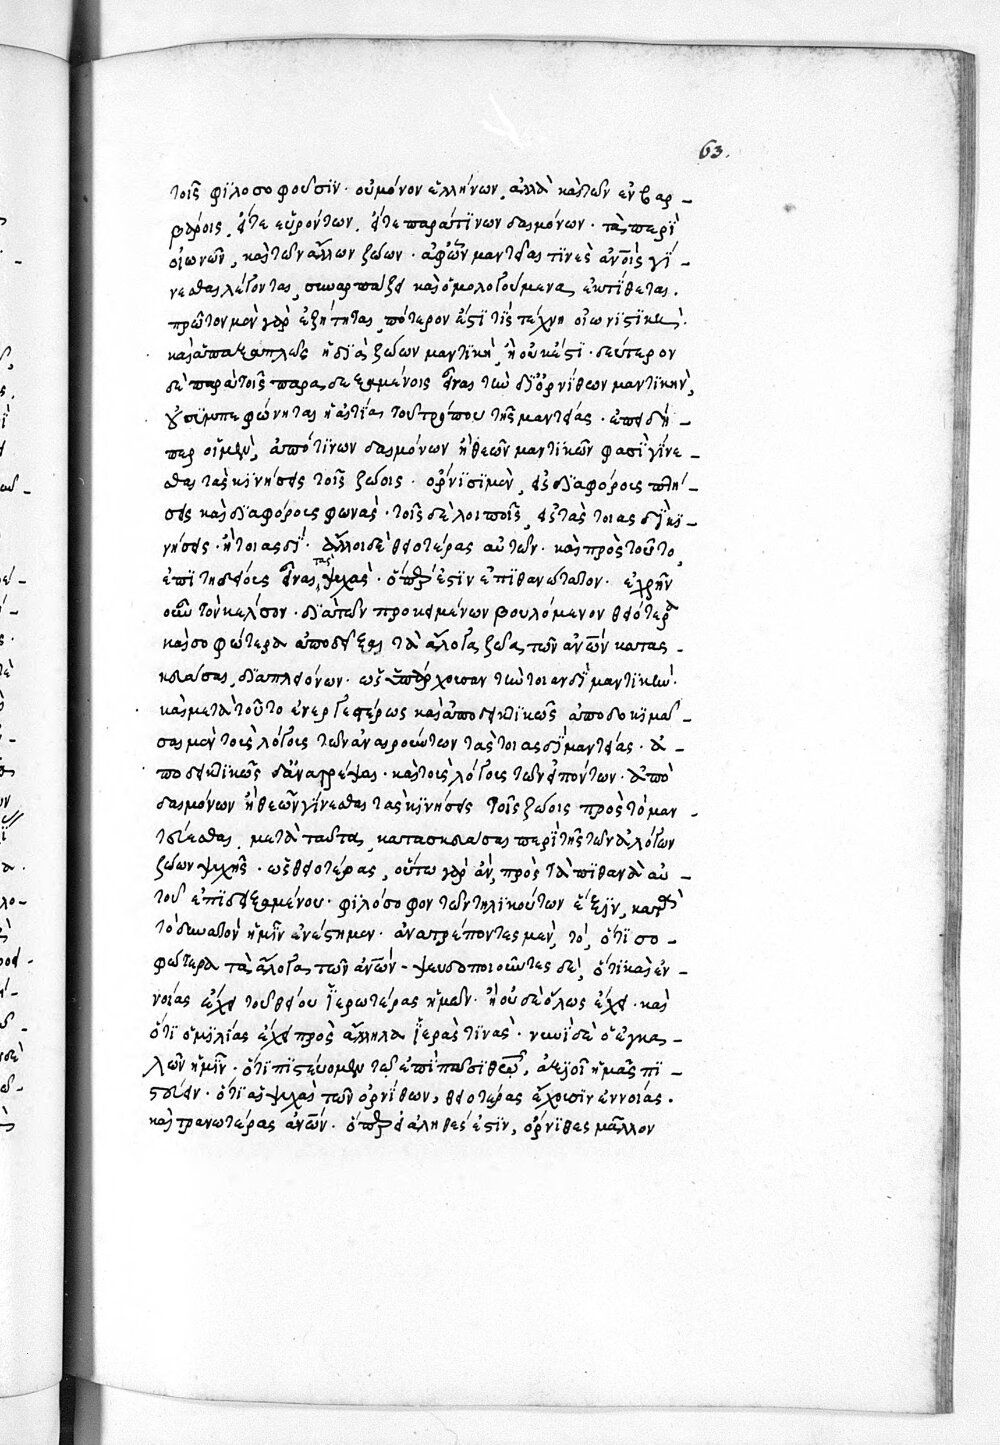 63.
τοῖς φιλοσοφοῦσιν· οὐ μόνον ἑλλήνων, ἀλλὰ καὶ τῶν ἐν βαρ-
βάροις, εἴτε εὑρόντων, εἴτε παρά τινων δαιμόνων· τὰ περὶ
οἰωνῶν, καὶ τῶν ἄλλων ζώων· ἀφ' ὧν μαντεῖαί τινες ἀνοῖς γί-
νεσθαι λέγονται, συναρπάζει καὶ ὁμολογούμενα ἐκτίθεται.
πρῶτον μὲν γὰρ ἐζήτηται, πότερον ἐστί τις τέχνη οἰωνιστικὴ·
καὶ ἁπαξαπλῶς ἡ διὰ ζώων μαντικὴ, ἢ οὐκ ἐστι· δεύτερον
δὲ παρὰ τοῖς παραδεξαμένοις εἶναι τὴν δι' ὀρνίθων μαντικὴν,
οὐ συμπεφώνηται ἡ αἰτία τοῦ τρόπου τῆς μαντείας· ἐπειδή-
περ οἱ μὲν, ἀπό τινων δαιμόνων ἢ θεῶν μαντικῶν φασὶ γίνε-
σθαι τὰς κινήσεις τοῖς ζώοις· ὄρνισι μὲν, εἰς διαφόρους πτή-
σεις καὶ διαφόρους φωνάς· τοῖς δὲ λοιποῖς, εἰς τὰς τοιασδὶ κι-
νήσεις· ἢ τοιασδί· ἄλλοι δὲ θειοτέρας αὐτῶν· καὶ πρὸς τοῦτο
ἐπιτηδείους εἶναι τὰς ψυχὰς· ὅπερ ἐστὶν ἀπιθανώτατον· ἐχρῆν
οὖν τὸν κέλσον· διὰ τῶν προκειμένων βουλόμενον θειότερα
καὶ σοφώτερα ἀποδεῖξαι τὰ ἄλογα ζῶα τῶν ἀνῶν κατα-
σκευάσαι, διὰ πλειόνων· ὡς ὑπάρχουσαν τὴν τοιανδὶ μαντικὴν·
καὶ μετὰ τοῦτο ἐνεργεστέρως καὶ ἀποδεικτικῶς ἀποδοκιμά-
σαι μὲν τοὺς λόγους τῶν ἀναιρούντων τὰς τοιασδὶ μαντείας· ἀ-
ποδεικτικῶς δ' ἀνατρέψαι· καὶ τοὺς λόγους τῶν εἰπόντων· ἀπὸ
δαιμόνων ἢ θεῶν γίνεσθαι τὰς κινήσεις τοῖς ζώοις πρὸς τὸ μαν-
τεύεσθαι, μετὰ ταῦτα, κατασκευάσαι περὶ τῆς τῶν ἀλόγων
ζώων ψυχῆς· ὡς θειοτέρας, οὕτω γὰρ ἂν, πρὸς τὰ πιθανὰ αὐ-
τοῦ ἐπιδειξαμένου· φιλόσοφον τῶν τηλικούτων ἕξιν, κατὰ
τὸ δυνατὸν ἡμῖν ἐνέστημεν· ἀνατρέποντες μὲν, τό, ὅτι σο-
φώτερα τὰ ἄλογα τῶν ἀνῶν - ψευδοποιοῦντες δὲ, ὅτι καὶ ἐν-
νοίας ἔχει τοῦ θείου ἱερωτέρας ἡμῶν· ἢ οὐδὲ ὅλως ἔχει· καὶ
ὅτι ὁμιλίας ἔχει πρὸς ἄλληλα ἱεράς τινας· νυνὶ δὲ ὁ ἐγκα-
λῶν ἡμῖν· ὅτι πιστεύομεν τῷ ἐπὶ πᾶσι θεῷ, ἀξιοῖ ἡμᾶς πι-
στεύειν· ὅτι αἱ ψυχαὶ τῶν ὀρνίθων, θειοτέρας ἔχουσιν ἐννοίας.
καὶ τρανωτέρας ἀνῶν· ὅπερ εἰ ἀληθές ἐστιν, ὄρνιθες μᾶλλον